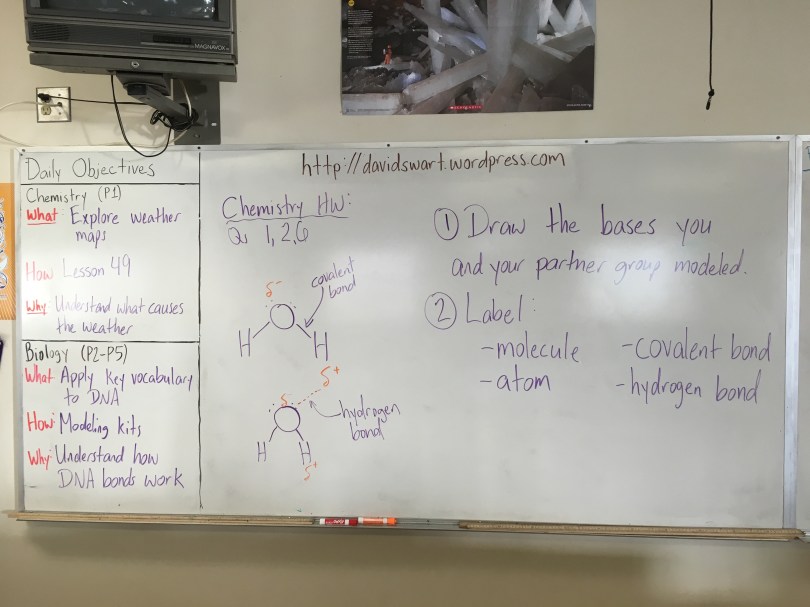 MAGNAVOX
SCHOLASTIC
http://davidswart.wordpress.com
Daily Objectives
Chemistry (P1)
What: Explore weather
maps
How Lesson 49
Why: Understand what causes
the weather
Biology (P2-P5)
What Apply key vocabulary
to DNA
How: Modeling kits
Why: Understand how
DNA bonds work
Chemistry HW:
Q: 1,2,6
covalent
bond
δ-
H H
δ+
δ-
hydrogen
bond
H H
δ+
① Draw the bases you
and your partner group modeled.
② Label:
-molecule -covalent bond
-atom -hydrogen bond